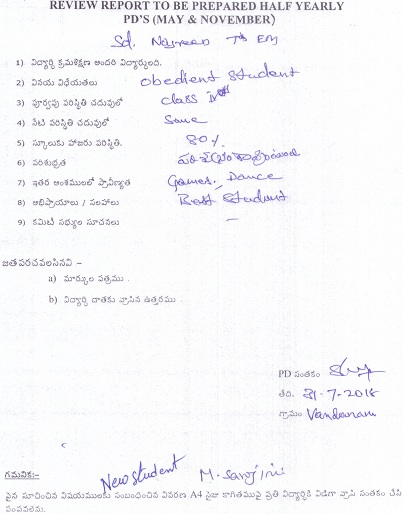 REVIEW REPORT TO BE PREPARED HALF YEARLY
PD'S (MAY & NOVEMBER)
Sd. Nasreen 7th EM
1) విద్యార్థి క్రమశిక్షణ అందరి విద్యార్థులది.
2) వినయ విధేయతలు obedient student
3) పూర్వపు పరిస్థితి చదువులో class IV
4) నేటి పరిస్థితి చదువులో Same
5) స్కూలుకు హాజరు పరిస్థితి. 80%
6) పరిశుభ్రత
7) ఇతర అంశములలో ప్రావీణ్యత Games, Dance
8) అభిప్రాయాలు / సలహాలు Best Student
9) కమిటి సభ్యుల సూచనలు –
జతపరచవలసినవి –
a) మార్కుల పత్రము .
b) విద్యార్థి దాతకు వ్రాసిన ఉత్తరము .
PD సంతకం
తేది. 31-7-2018
గ్రామం Vandanam
New student M. Sarojini
గమనిక:–
పైన సూచించిన విషయములకు సంబంధించిన వివరణ A4 సైజు కాగితముపై ప్రతి విద్యార్థికి విడిగా వ్రాసి సంతకం చేసి
పంపవలెను.